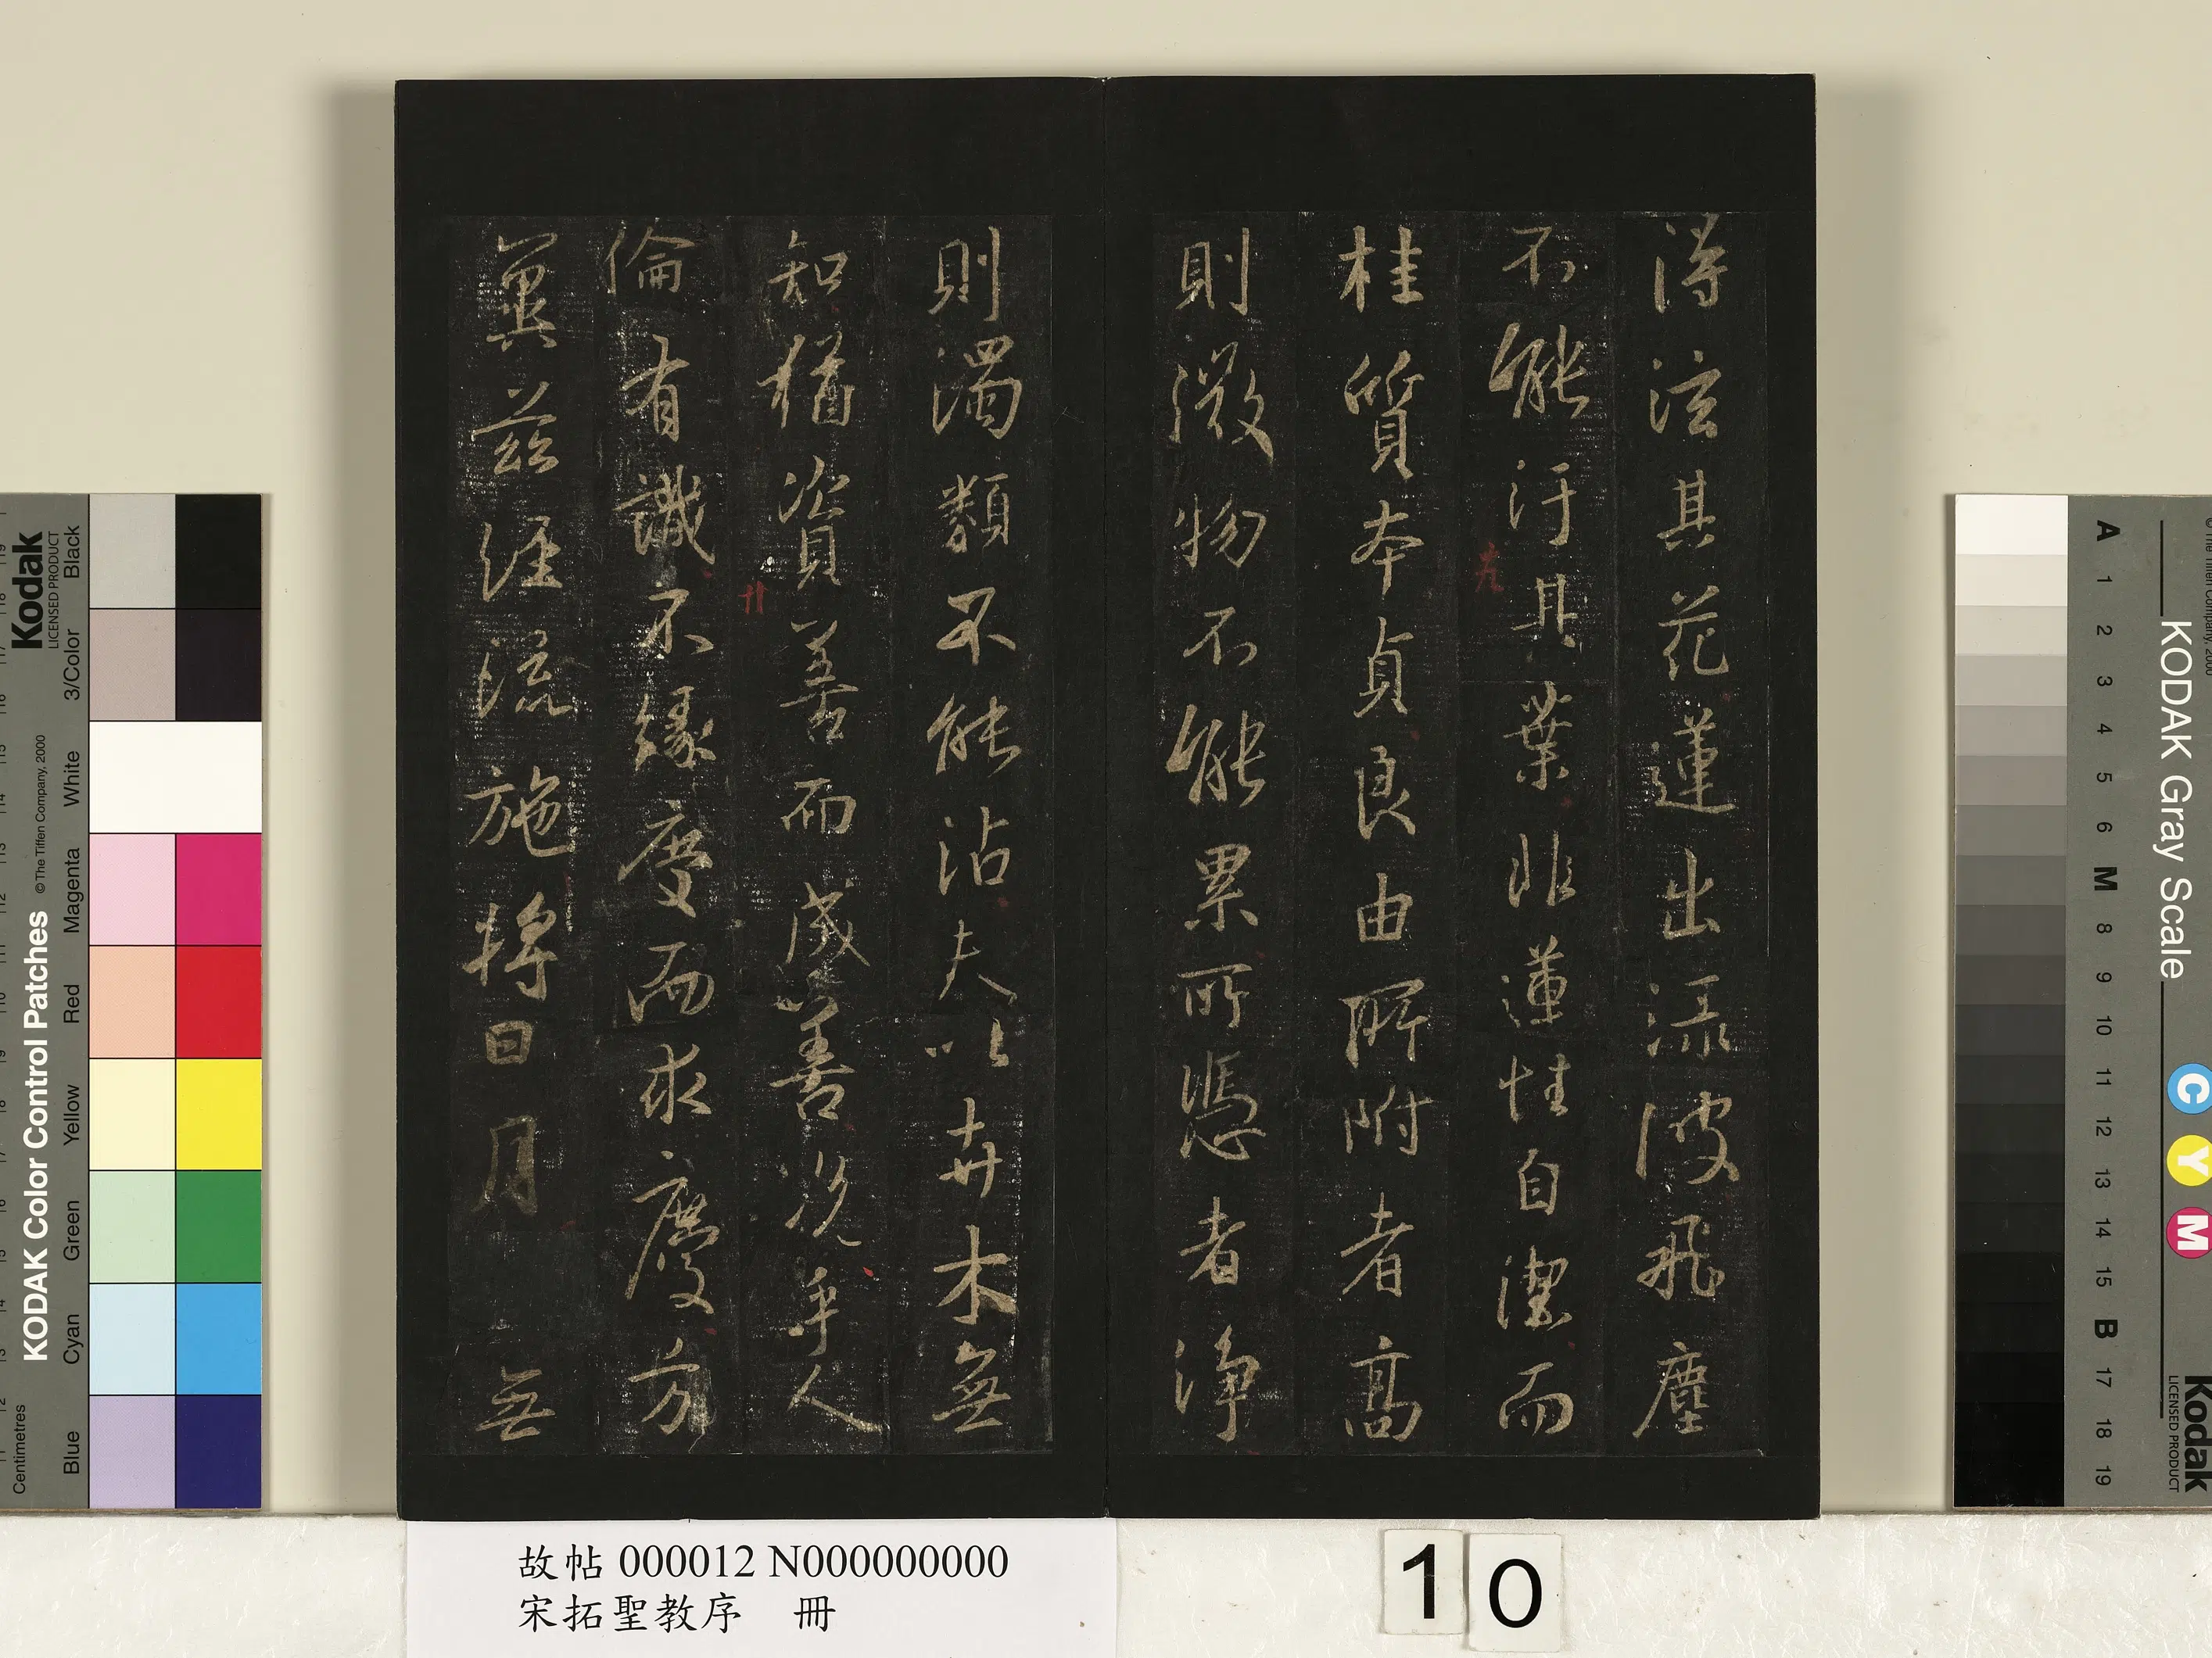 得泫其花蓮出淥波飛塵
不能汙其葉非蓮性自潔而
桂質本貞良由所附者高
則微物不能累所憑者淨
則濁類不能沾夫以卉木無
知猶資善而成善況乎人
倫有識不緣慶而求慶方
冀茲經流施將日月無
卅
故帖 000012 N000000000
宋拓聖教序 冊
10
Kodak
LICENSED PRODUCT
KODAK Color Control Patches
© The Tiffen Company, 2000
Centimetres
Blue
Cyan
Green
Yellow
Red
Magenta
White
3/Color
Black
KODAK Gray Scale
© The Tiffen Company, 2000
A 1 2 3 4 5 6 M 8 9 10 11 12 13 14 15 B 17 18 19
C Y M
Kodak
LICENSED PRODUCT